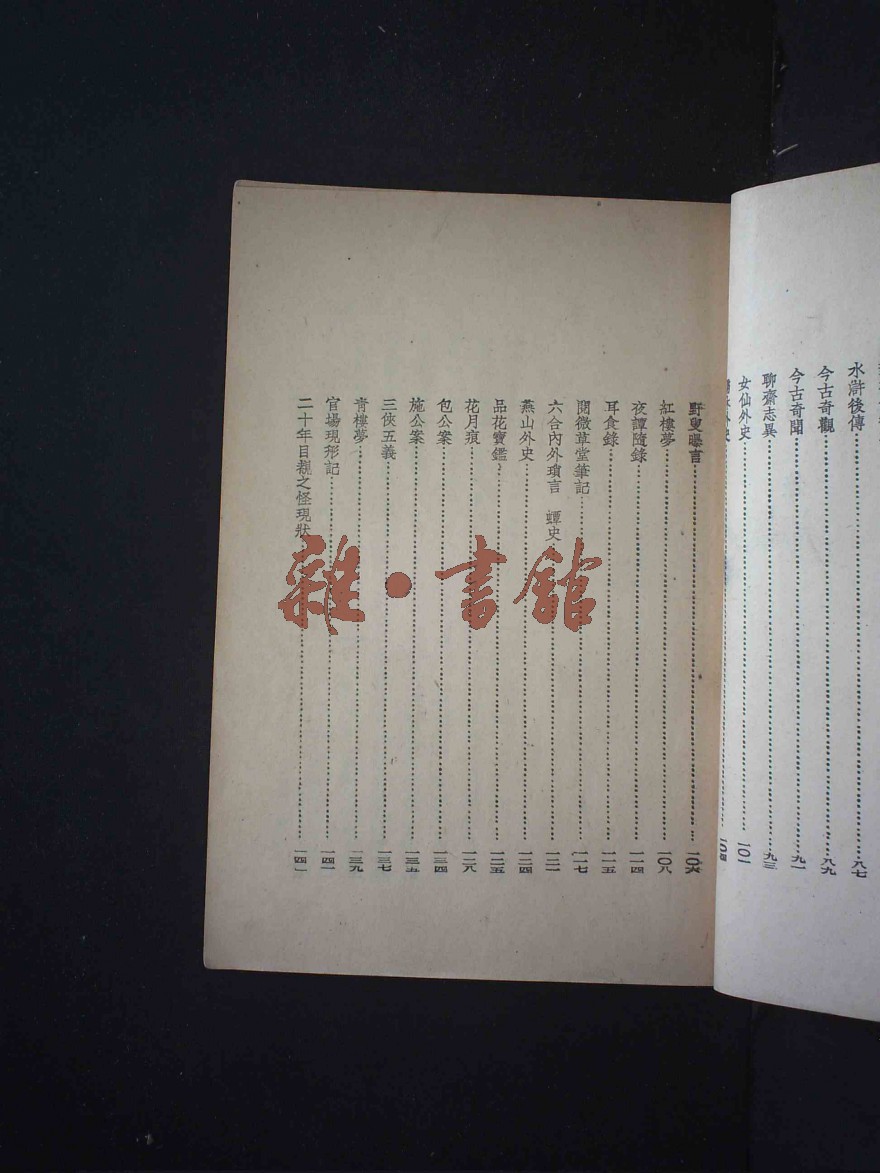 水滸後傳 八七
今古奇觀 八九
今古奇聞 九一
聊齋志異 九三
女仙外史 一〇一
外史 一〇四
野叟曝言 一〇六
紅樓夢 一〇八
夜譚隨錄 一一四
耳食錄 一一五
閱微草堂筆記 一一七
六合內外瑣言 蟫史 一二一
燕山外史 一二四
品花寶鑑 一二五
花月痕 一二八
包公案 一三四
施公案 一三五
三俠五義 一三七
青樓夢 一三九
官場現形記 一四一
二十年目覩之怪現狀 一四一
雜·書館